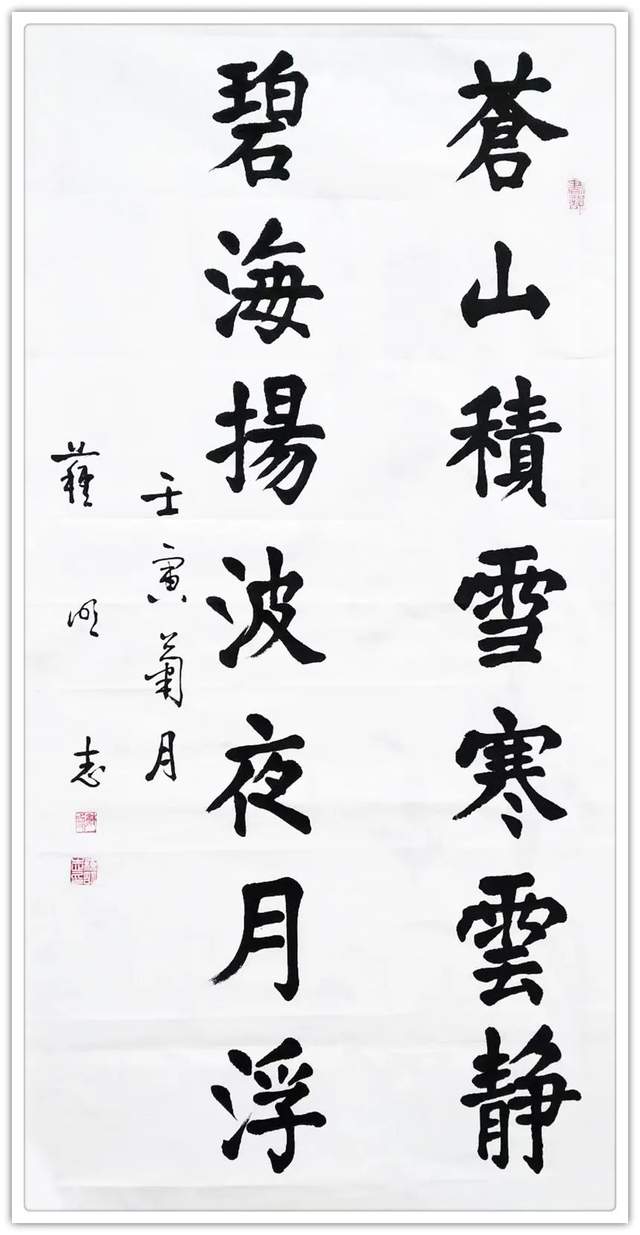 蒼山積雪寒雲靜
碧海揚波夜月浮
壬寅菊月
明志